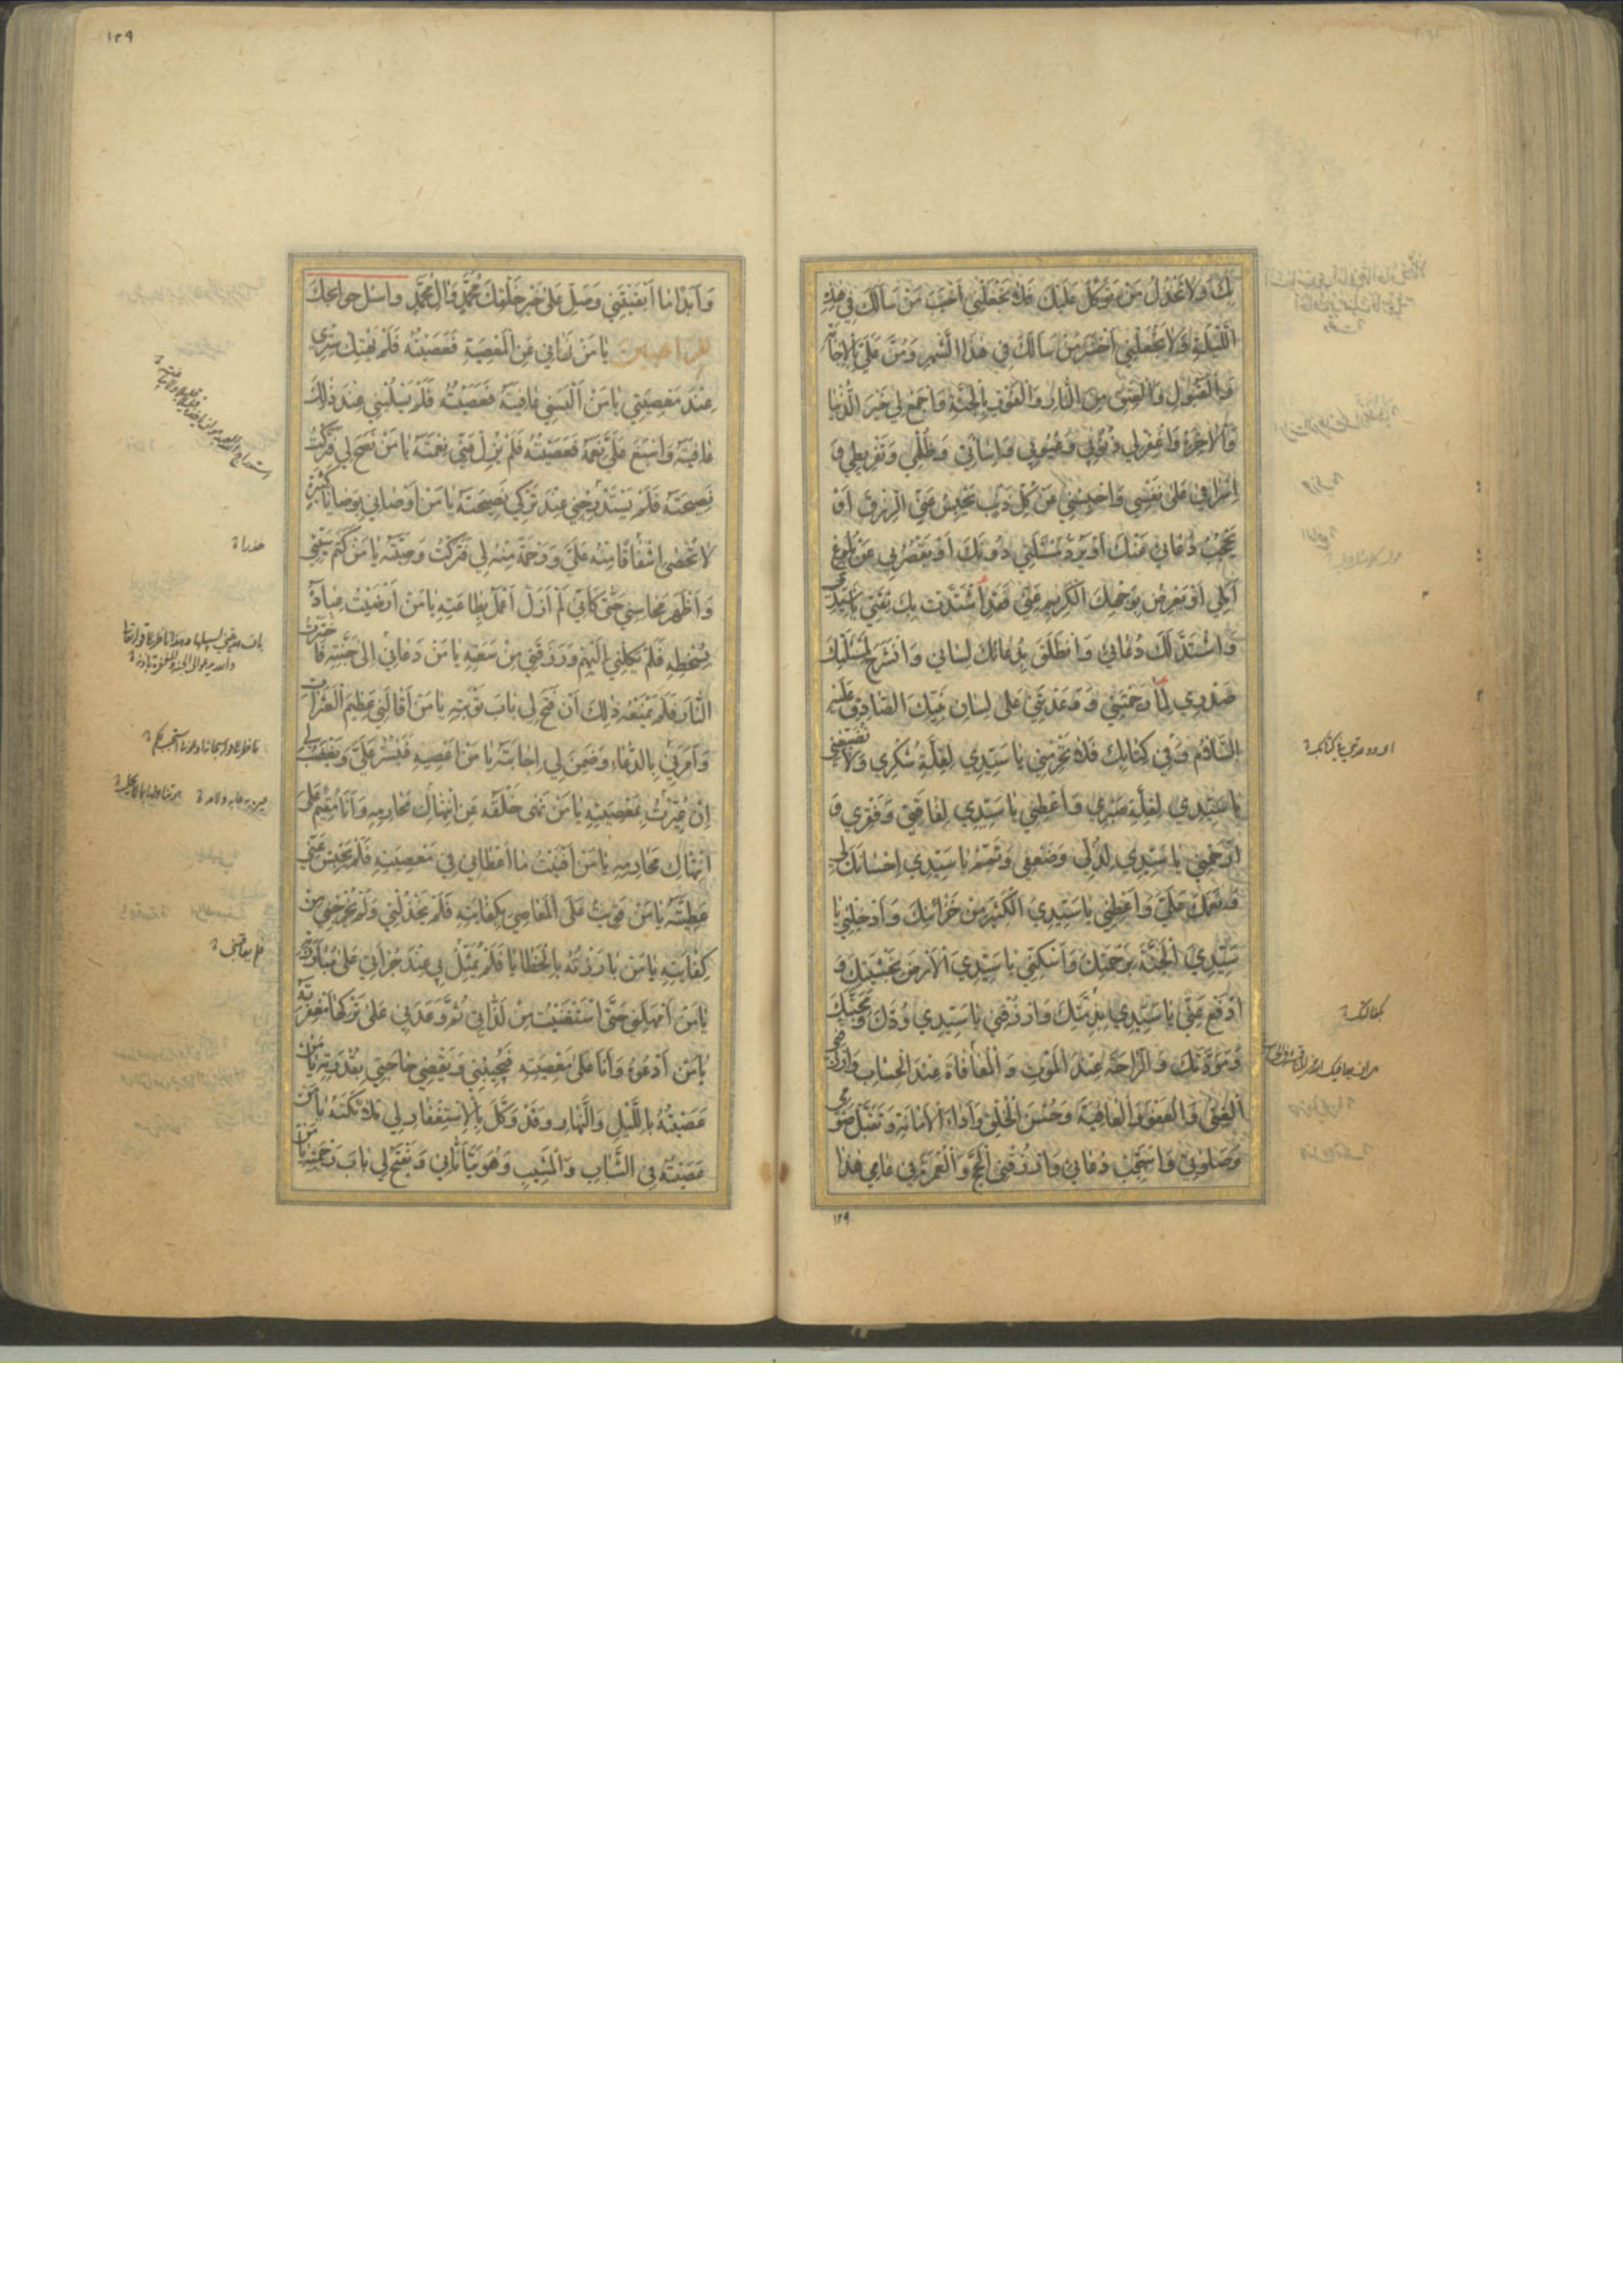 بك ولا عدل من توكل عليك فلا تجعلني أخيب من سألك في هذه
الليلة ولا تجعلني أخسر من سألك في هذا الشهر ومن علي بالإجابة
والقبول والعتق من النار والفوز بالجنة واجمع لي خير الدنيا
والآخرة واغفر لي ذنوبي وعيوبي وإساءتي وظلمي وتفريطي و
إسرافي على نفسي واحبسني عن كل ذنب يحبس عني الرزق أو
يحجب دعائي عنك أو يرد مسئلتي دونك أو يقصر بي عن بلوغ
أملي أو تعرض بوجهك الكريم عني فقد اشتدت بك ثقتي يا سيدي
واشتد لك دعائي وانطلق بدعائك لساني وانشرح لمسئلتك
صدري لما رحمتني ووعدتني على لسان نبيك الصادق عليه
السلام وفي كتابك فلا تحرمني يا سيدي لقلة شكري ولا تضيعني
يا سيدي لقلة صبري وأعطني يا سيدي لفاقتي وفقري و
ارحمني يا سيدي لذلي وضعفي وتمم يا سيدي إحسانك لي
ونعمك علي وأعطني يا سيدي الكثير من خزائنك وأدخلني يا
سيدي الجنة برحمتك وأسكني يا سيدي الأرض بخشيتك و
ادفع عني يا سيدي بذمتك وارزقني يا سيدي ودك ومحبتك
ومودتك والراحة عند الموت والمعافاة عند الحساب وارزقني
الغنى والعفو والعافية وحسن الخلق وأداء الأمانة وتقبل صومي
وصلوتي واستجب دعائي وارزقني الحج والعمرة في عامي هذا
١٢٩
١٢٩
وأبدا ما أبقيتني وصل على خير خلقك محمد وآل محمد واسئل حوائجك
للراهبين يا من نهاني عن المعصية فعصيته فلم يهتك ستري
عند معصيتي يا من ألبسني عافيته فعصيته فلم يسلبني عند ذلك
عافيته وأسبغ علي نعمه فعصيته فلم يزل عني نعمته يا من نصح لي فتركت
نصيحته فلم يستدرجني عند تركي نصيحته يا من أوصاني بوصايا كثيرة
لا تحصى إشفاقا منه علي ورحمة منه لي فتركت وصيته يا من كتم سيئتي
وأظهر محاسني حتى كأني لم أزل أعمل بطاعته يا من أرضيت عباده
بسخطه فلم يكلني إليهم ورزقني من سعته يا من دعاني إلى جنته فاخترت
النار فلم يمنعه ذلك أن فتح لي باب توبته يا من أقالني عظيم العثرات
وأمرني بالدعاء وضمن لي إجابته يا من أعصيه فيستر علي ويغضب لي
إن عيرت بمعصيته يا من نهى خلقه عن انتهاك محارمي وأنا مقيم على
انتهاك محارمه يا من أفنيت ما أعطاني في معصيته فلم يحبس عني
عطيته يا من قويت على المعاصي بكفايته فلم يخذلني ولم يخرجني من
كفايته يا من بارزته بالخطايا فلم يمثل بي عند جرأتي على مبارزته
يا من أمهلني حتى استغنيت من لذاتي ثم وعدني على تركها مغفرته
يا من أدعوه وأنا على معصيته فيجيبني ويقضي حاجتي بقدرته يا من
عصيته بالليل والنهار وقد وكل بالإستغفار لي ملائكته يا من
عصيته في الشباب والمشيب وهو يتأناني ويفتح لي باب رحمته يا من
فلم يعاقبني